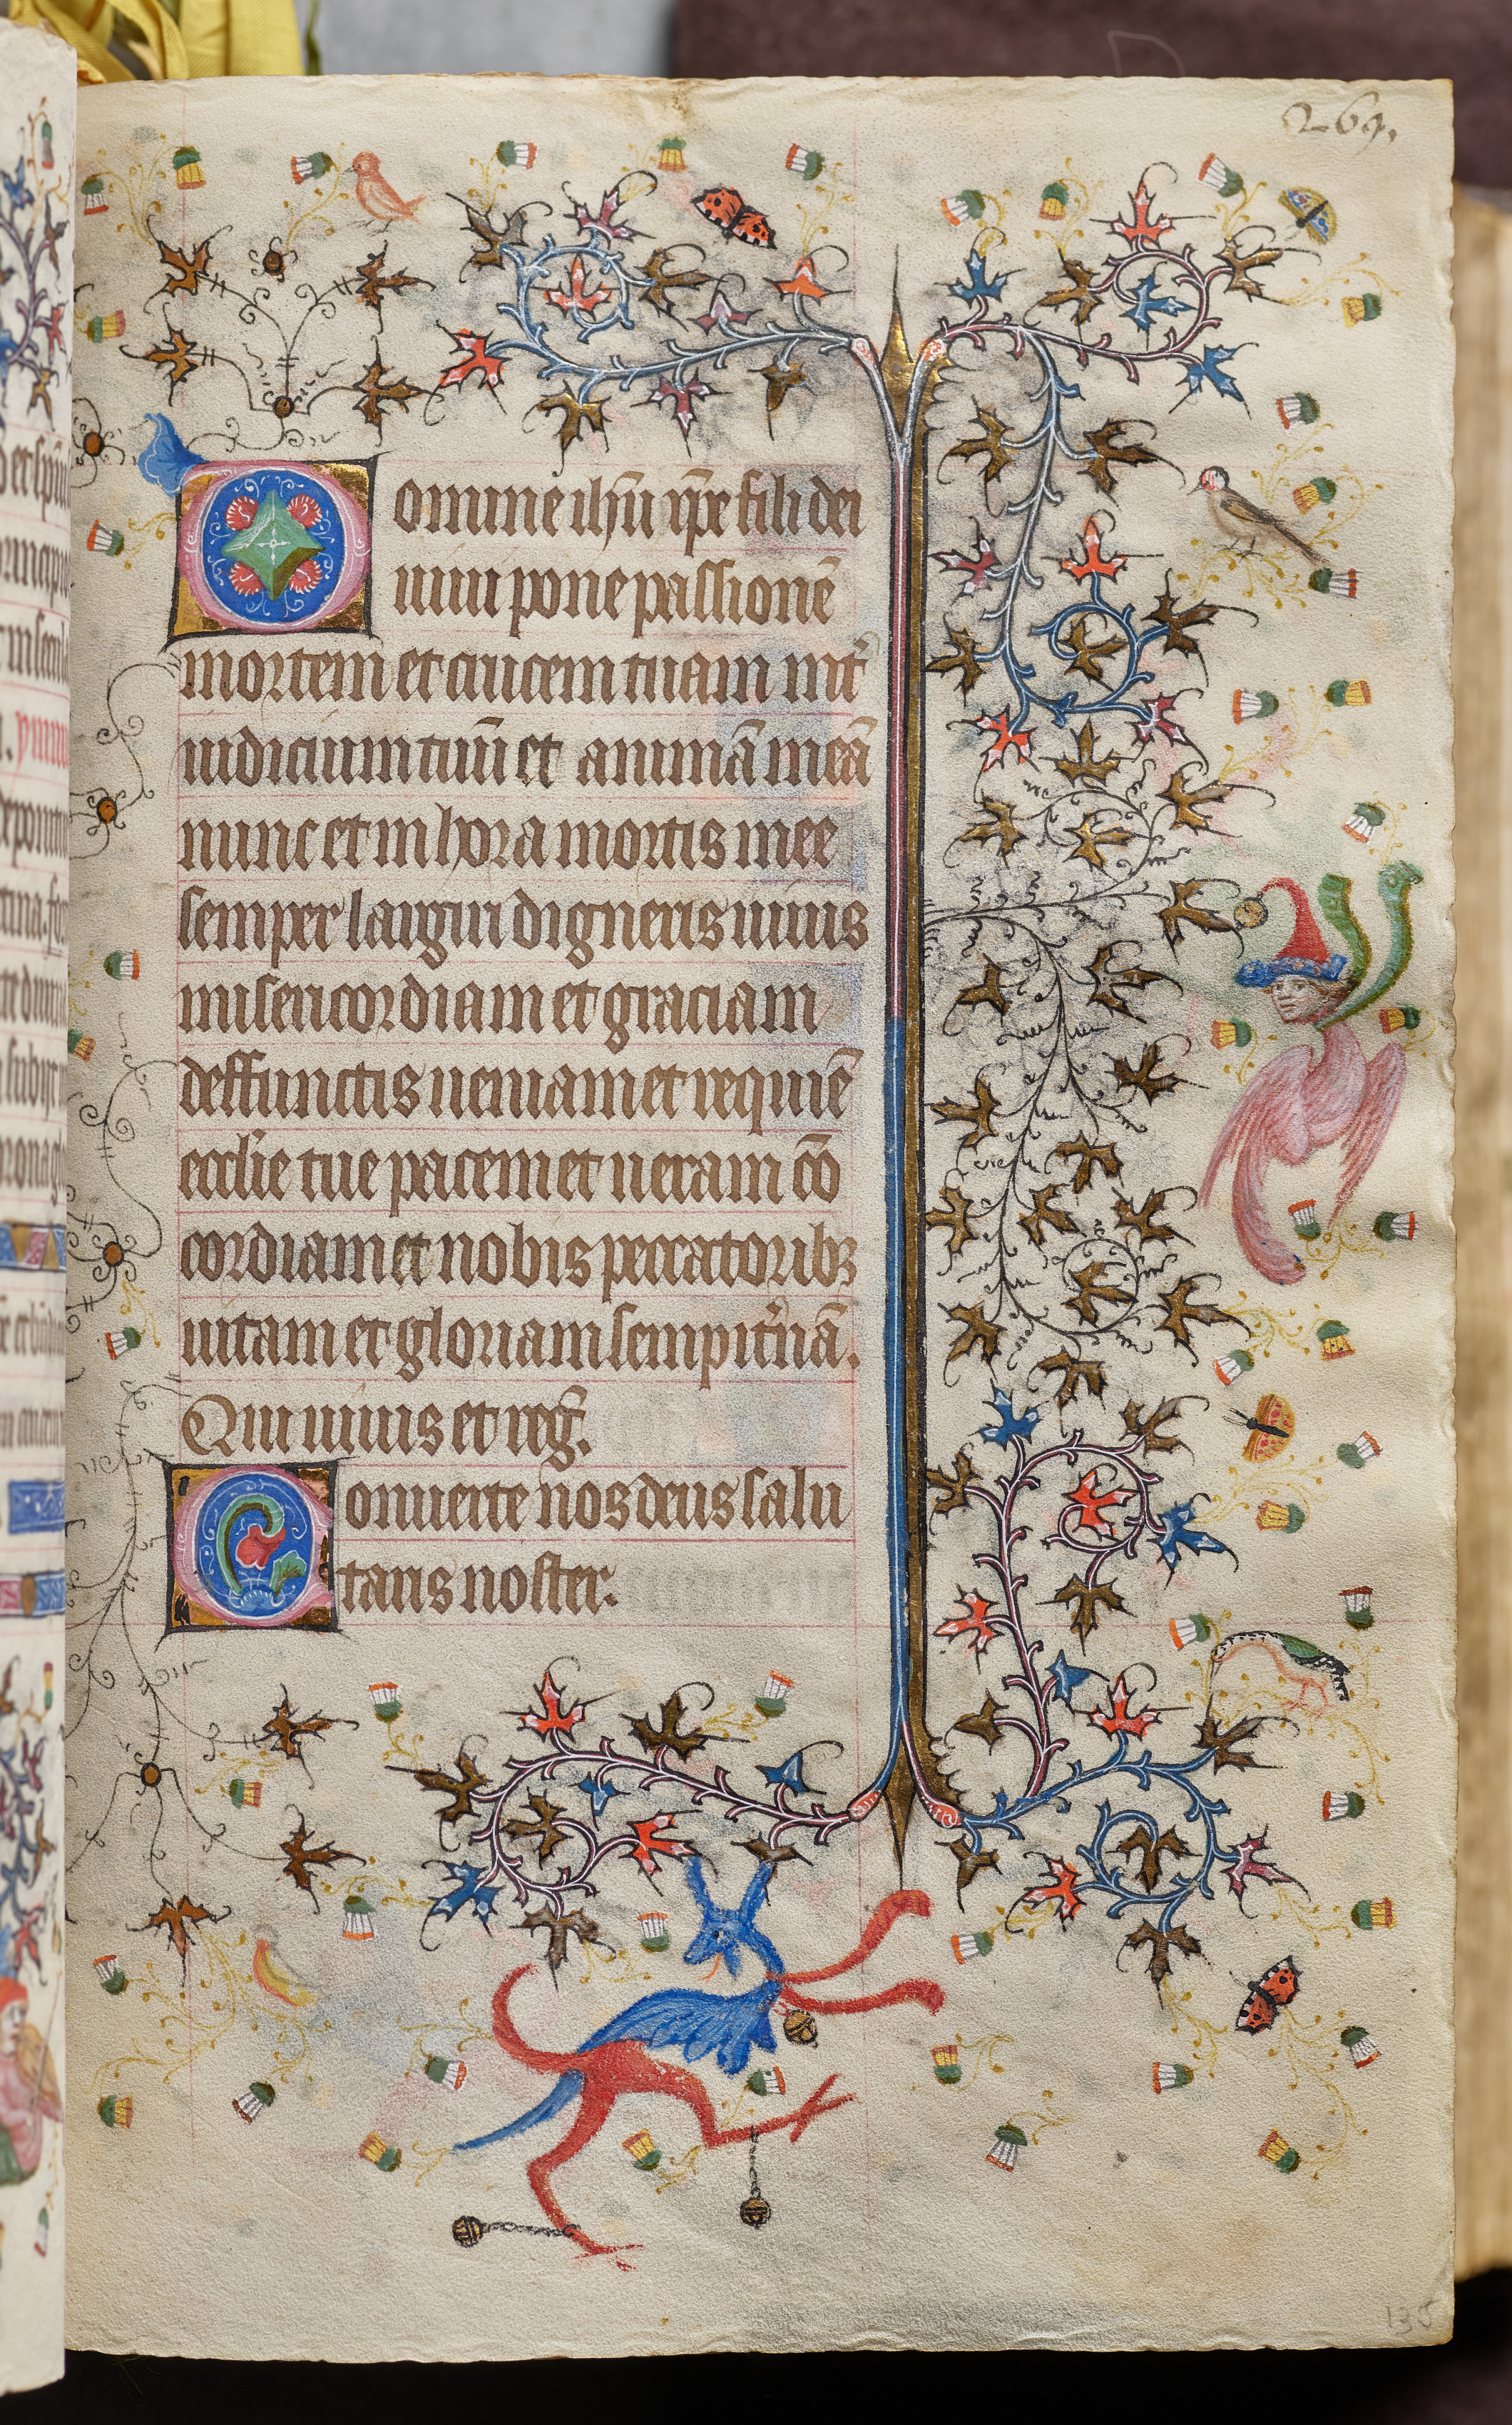 269.
Domine ihu xpe fili dei
uiui pone passionē
mortem et crucem tuam int
iudicium tuū et animā meā
nunc et in hora mortis mee
semper largiri digneris uiuis
misericordiam et graciam
deffunctis ueniam et requiē
ecclie tue pacem et ueram cō
cordiam et nobis peccatoribꝫ
uitam et gloriam sempitnā.
Qui uiuis et reg.
Conuerte nos deus salu
taris noster.
135